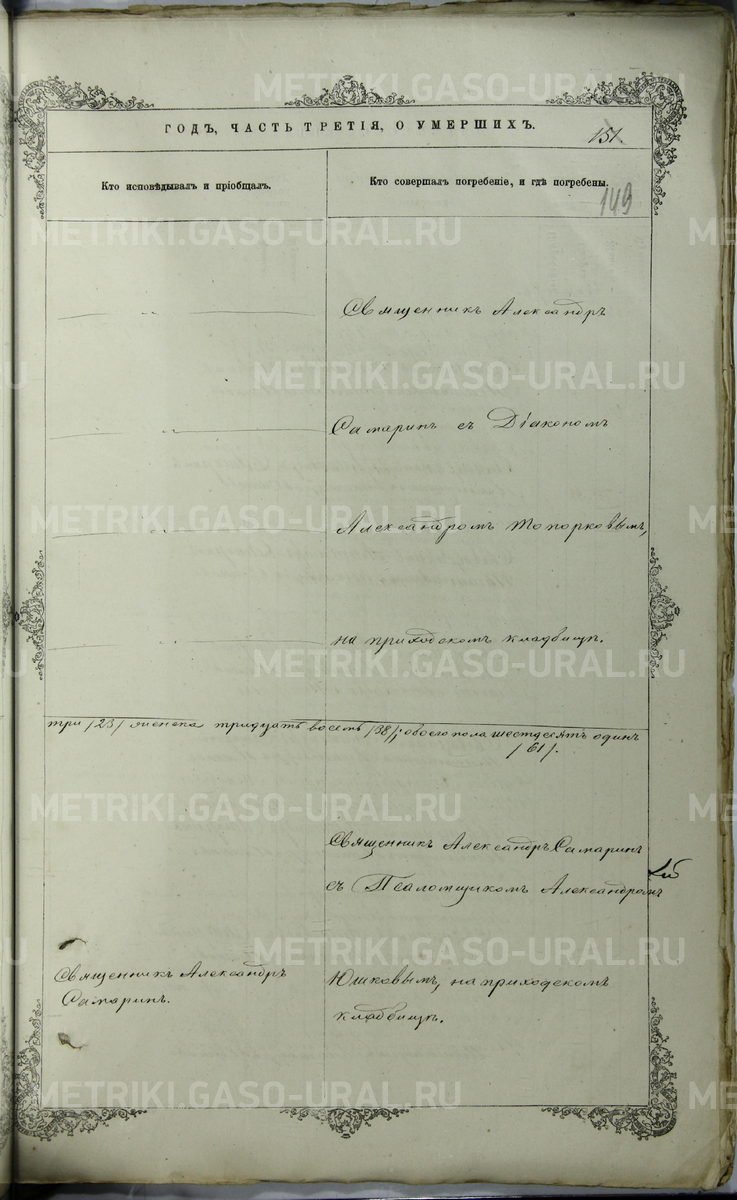 ГОДЪ, ЧАСТЬ ТРЕТІЯ, О УМЕРШИХЪ.
151
Кто исповѣдывалъ и пріобщалъ.
Кто совершалъ погребеніе, и гдѣ погребены.
149
Священникъ Александръ
Самаринъ съ Діакономъ
Александромъ Топорковымъ,
на приходскомъ кладбищѣ.
три /23/ женска тридцать восемь /38/; обоего пола шестдесятъ одинъ
/61/.
Священникъ Александръ Самаринъ
съ Псаломщикомъ Александромъ
Священникъ Александръ
Самаринъ.
Юшковымъ, на приходскомъ
кладбищѣ.
METRIKI.GASO-URAL.RU